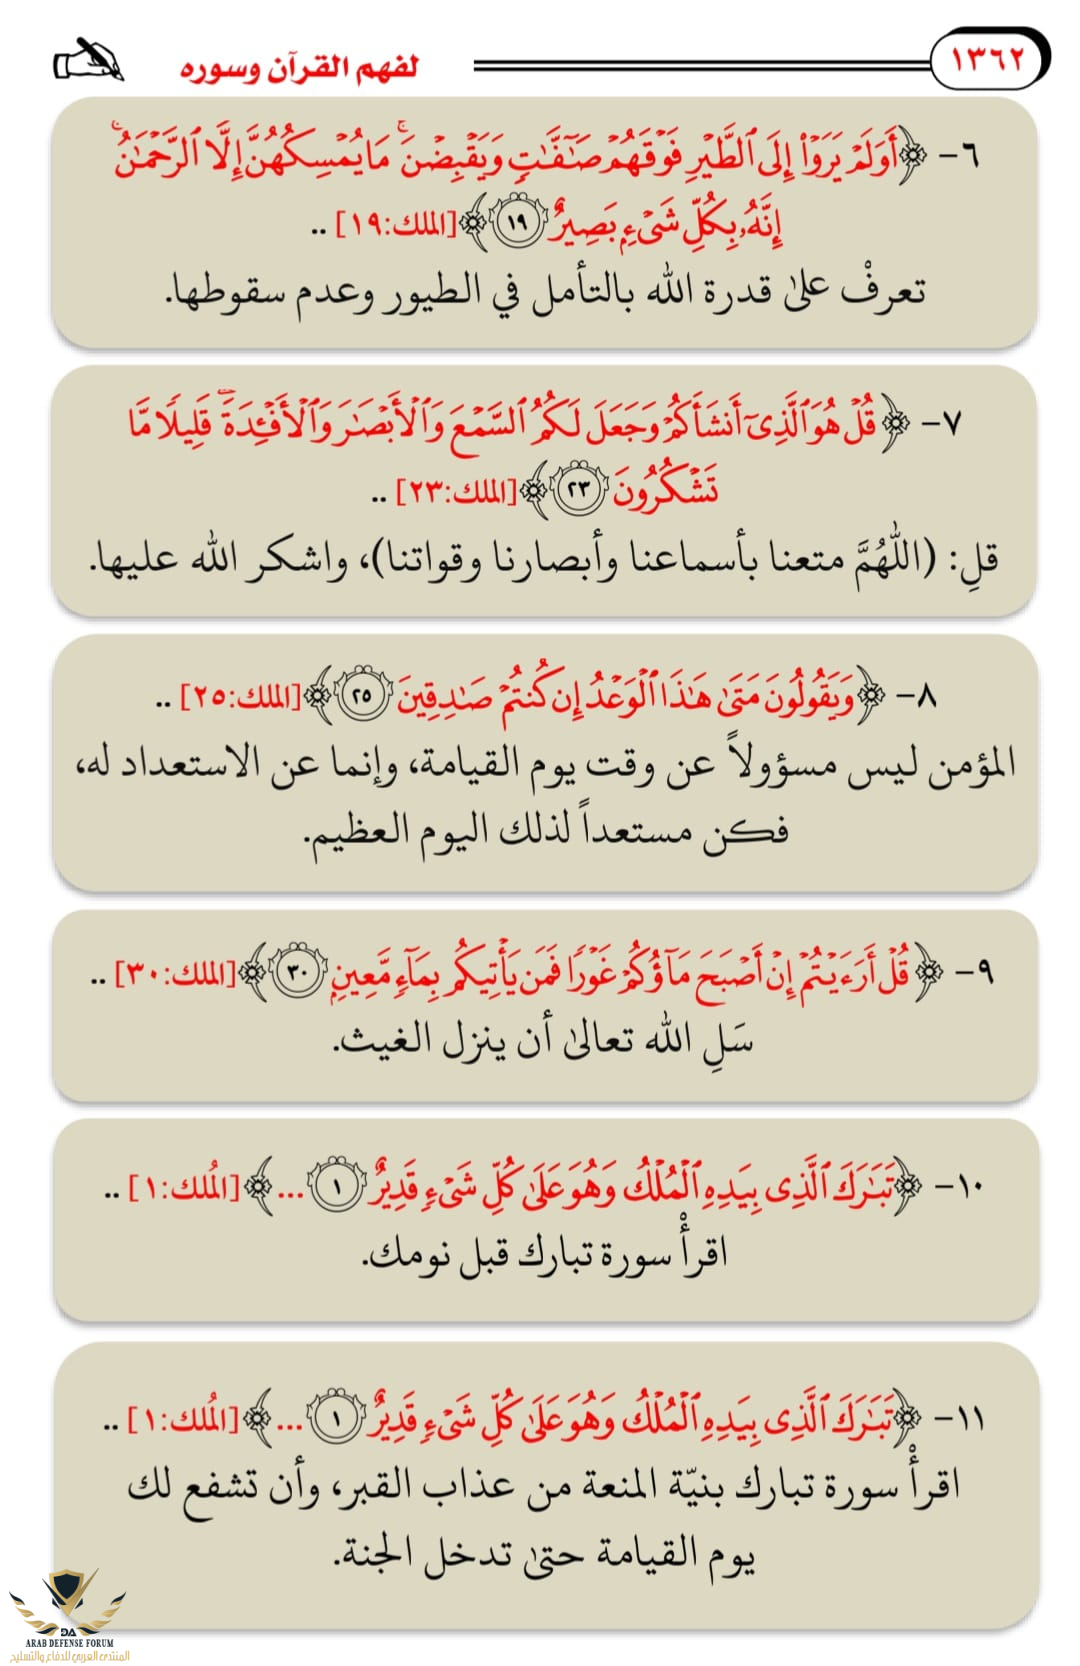 ١٣٦٢
لفهم القرآن وسوره
٦- ﴿أَوَلَمْ يَرَوْا۟ إِلَى ٱلطَّيْرِ فَوْقَهُمْ صَـٰٓفَّـٰتٍ وَيَقْبِضْنَ ۚ مَا يُمْسِكُهُنَّ إِلَّا ٱلرَّحْمَـٰنُ ۚ
إِنَّهُۥ بِكُلِّ شَىْءٍۭ بَصِيرٌ ١٩﴾ [الملك:١٩] ..
تعرفْ على قدرة الله بالتأمل في الطيور وعدم سقوطها.
٧- ﴿قُلْ هُوَ ٱلَّذِىٓ أَنشَأَكُمْ وَجَعَلَ لَكُمُ ٱلسَّمْعَ وَٱلْأَبْصَـٰرَ وَٱلْأَفْـِٔدَةَ ۖ قَلِيلًا مَّا
تَشْكُرُونَ ٢٣﴾ [الملك:٢٣] ..
قلِ: (اللَّهُمَّ متعنا بأسماعنا وأبصارنا وقواتنا)، واشكر الله عليها.
٨- ﴿وَيَقُولُونَ مَتَىٰ هَـٰذَا ٱلْوَعْدُ إِن كُنتُمْ صَـٰدِقِينَ ٢٥﴾ [الملك:٢٥] ..
المؤمن ليس مسؤولاً عن وقت يوم القيامة، وإنما عن الاستعداد له،
فكن مستعداً لذلك اليوم العظيم.
٩- ﴿قُلْ أَرَءَيْتُمْ إِنْ أَصْبَحَ مَآؤُكُمْ غَوْرًا فَمَن يَأْتِيكُم بِمَآءٍ مَّعِينٍۭ ٣٠﴾ [الملك:٣٠] ..
سَلِ الله تعالىٰ أن ينزل الغيث.
١٠- ﴿تَبَـٰرَكَ ٱلَّذِى بِيَدِهِ ٱلْمُلْكُ وَهُوَ عَلَىٰ كُلِّ شَىْءٍ قَدِيرٌ ١ ...﴾ [المُلك:١] ..
اقرأْ سورة تبارك قبل نومك.
١١- ﴿تَبَـٰرَكَ ٱلَّذِى بِيَدِهِ ٱلْمُلْكُ وَهُوَ عَلَىٰ كُلِّ شَىْءٍ قَدِيرٌ ١ ...﴾ [المُلك:١] ..
اقرأْ سورة تبارك بنيّة المنعة من عذاب القبر، وأن تشفع لك
يوم القيامة حتىٰ تدخل الجنة.
DA
ARAB DEFENSE FORUM
المنتدى العربي للدفاع والتسليح